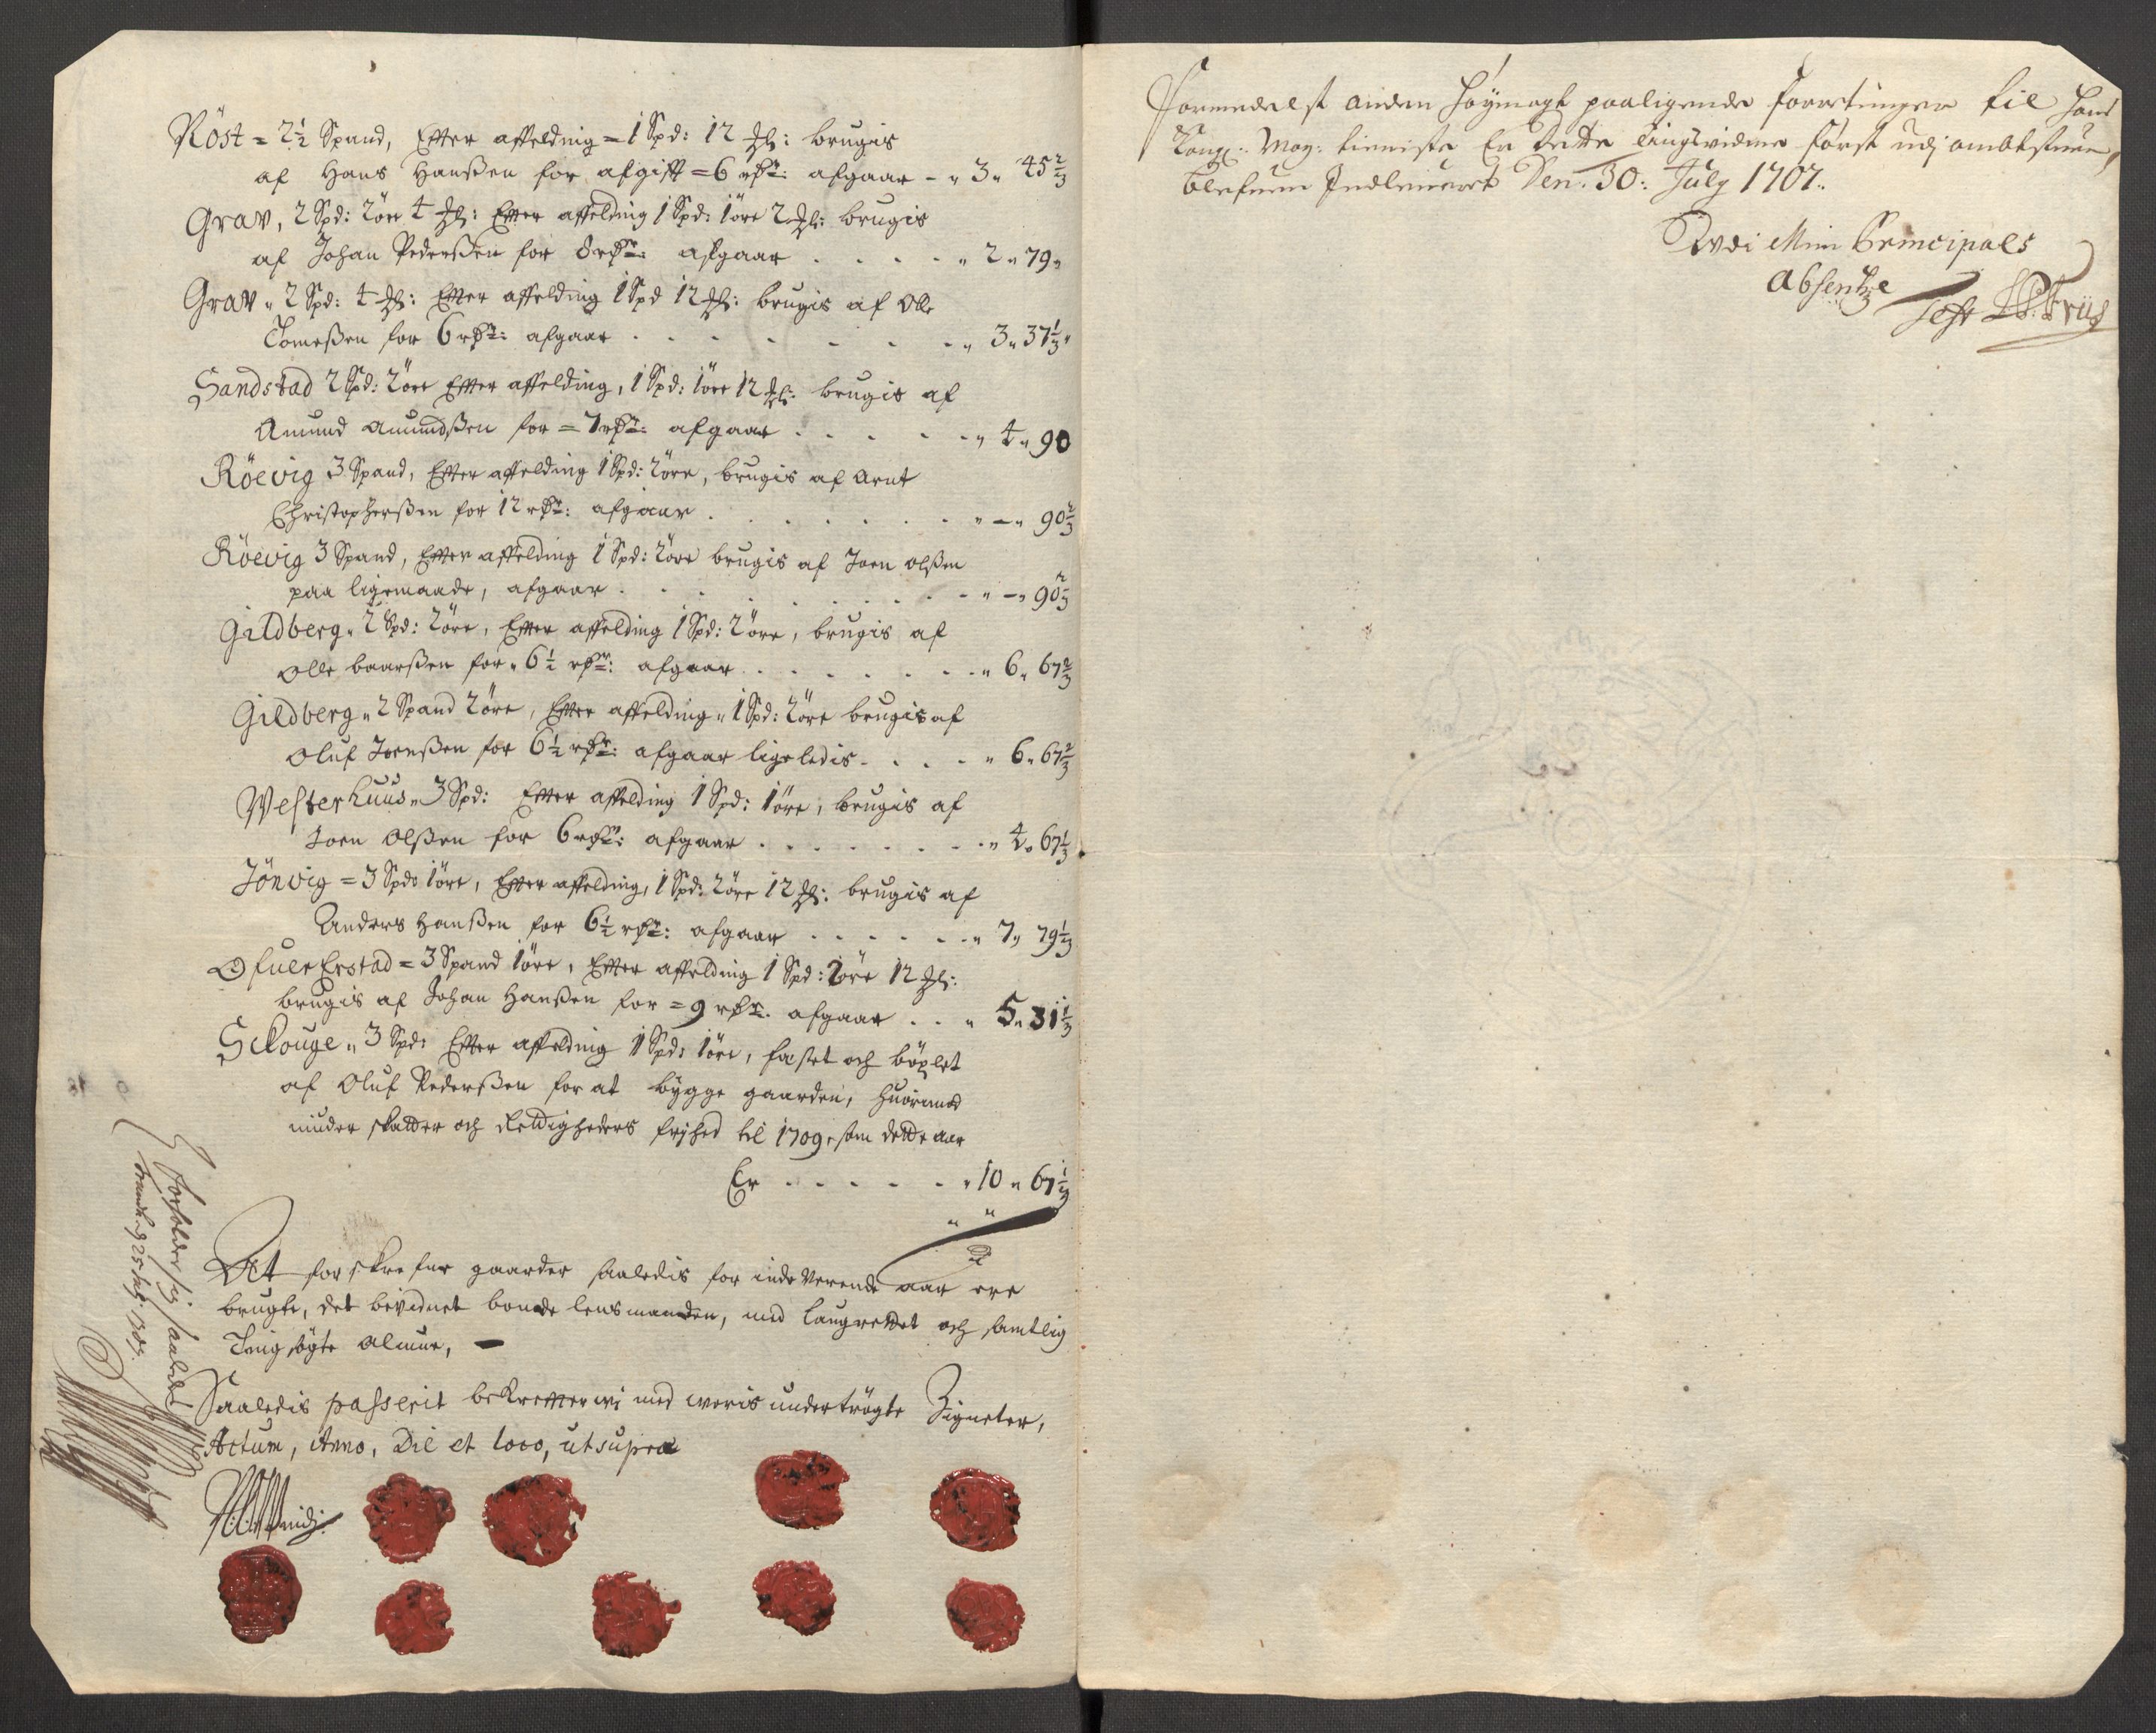 Röst = 2½ Spand, Efter affelding = 1 Spd: 12 : brugis
af Hans Hanßen for afgifft = 6 rdr: afgaar - " 3 " 45⅔
Grav, 2 Spd: 2 öre 4 : Efter affelding 1 Spd: 1 öre 2 : brugis
af Johan Pederßen for 8 rdr: afgaar . . . . " 2 " 79 "
Grav " 2 Spd: 4 : Efter affelding 1 Spd 12 : brugis af Olle
Tomeßen for 6 rdr: afgaar . . . . . . " 3 " 37⅓ "
Sandstad 2 Spd: 2 öre Efter affelding, 1 Spd: 1 öre 12 : brugis af
Amund Amundßen for = 7 rdr: afgaar . . . . . " 4 " 90
Röevig 3 Spand, Efter affelding 1 Spd: 2 öre, brugis af Arnt
Christopherßen for 12 rdr: afgaar . . . . . . " - " 90⅔
Röevig 3 Spand, Efter affelding 1 Spd: 2 öre brugis af Joen Olßen
paa ligemaade, afgaar . . . . . . . " - " 90⅔
Gildberg " 2 Spd: 2 öre, Efter affelding 1 Spd: 2 öre, brugis af
Olle baarßen for " 6½ rdr: afgaar . . . . . " 6 " 67⅔
Gildberg " 2 Spand 2 öre, Efter affelding " 1 Spd: 2 öre brugis af
Oluf Joenßen for 6½ rdr: afgaar ligeledis . . . . " 6 " 67⅔
Vesterhuus " 3 Spd: Efter affelding 1 Spd: 1 öre, brugis af
Joen Olßen for 6 rdr: afgaar . . . . . . . " 4 " 67⅓
Jönvig = 3 Spd: 1 öre, Efter affelding, 1 Spd: 2 öre 12 : brugis af
Anders Hanßen for 6½ rdr: afgaar . . . . . . " 7 " 79⅓
Ofuer Erstad = 3 Spand 1 öre, Efter affelding 1 Spd: 2 öre 12 :
brugis af Johan Hanßen for = 9 rdr: afgaar . . " 5 " 31⅓
Schouge " 3 Spd: Efter affelding 1 Spd: 1 öre, festet och böxlet
af Oluf Pederßen for at bygge gaarden, huorimod
niuder skatter och Rettigheders frihed til 1709, som dette aar
Er . . . . . . " 10 " 67⅓
At forskrefne gaarder saaledis for inde Verende aar ere
brugte, det bevidnet bonde lensmanden, med laugrettet och samtlig
Tingsögte almue, -
Saaledis passerit bekrefter vi med voris undertrögte Signeter,
Actum, Anno, Die et loco, ut supra
forholder sig saaledis
25 July 1707.
Formedelst anden höymagt paaligende forretninger til Hans
Kongl: May: tieniste Er dette tingsvidne först udj ambtstuen,
blefuen Indleuert Den. 30: July 1707.
Udi Min Principals
Absentze